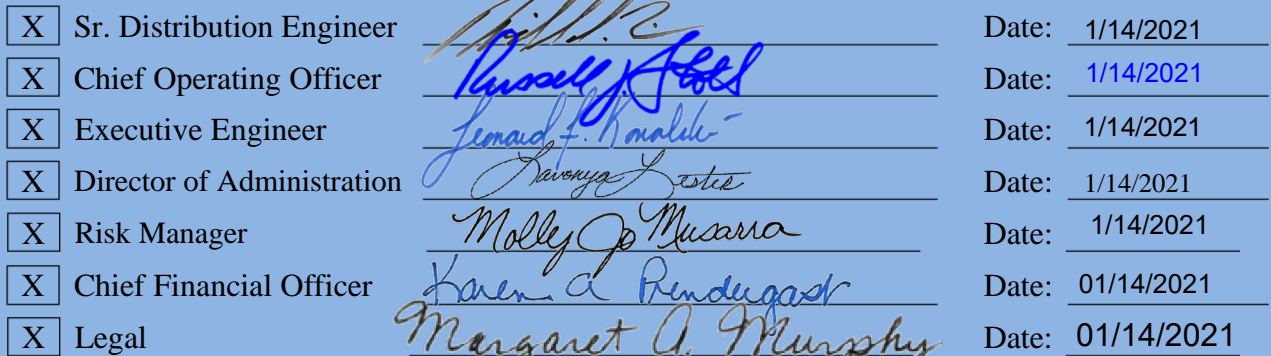 X Sr. Distribution Engineer Date: 1/14/2021
X Chief Operating Officer Russell J Date: 1/14/2021
X Executive Engineer Leonard F. Date: 1/14/2021
X Director of Administration Lavonya Lester Date: 1/14/2021
X Risk Manager Molly Jo Musarra Date: 1/14/2021
X Chief Financial Officer Karen A Prendergast Date: 01/14/2021
X Legal Margaret A. Murphy Date: 01/14/2021